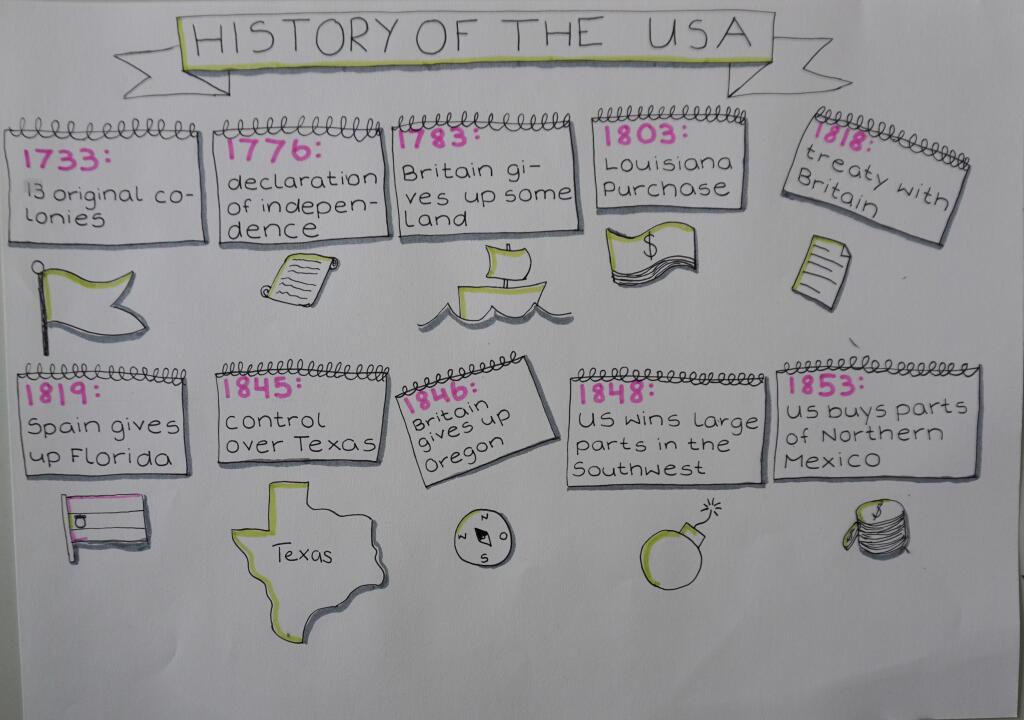 HISTORY OF THE USA
1733:
13 original co-
lonies
1776:
declaration
of indepen-
dence
1783:
Britain gi-
ves up some
land
1803:
Louisiana
Purchase
1818:
treaty with
Britain
$
1819:
Spain gives
up Florida
1845:
control
over Texas
1846:
Britain
gives up
Oregon
1848:
US wins large
parts in the
Southwest
1853:
US buys parts
of Northern
Mexico
Texas
N
Z O
S
$